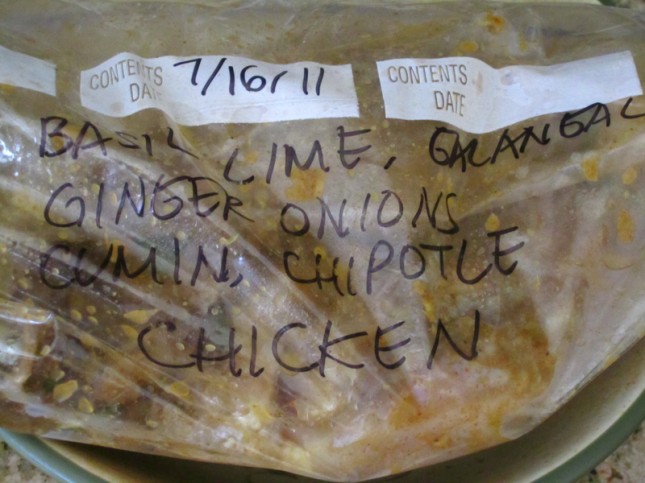 CONTENTS 7/16/11
DA
CONTENTS
DATE
BASIL LIME, GALANGAL
GINGER ONIONS
CUMIN, CHIPOTLE
CHICKEN